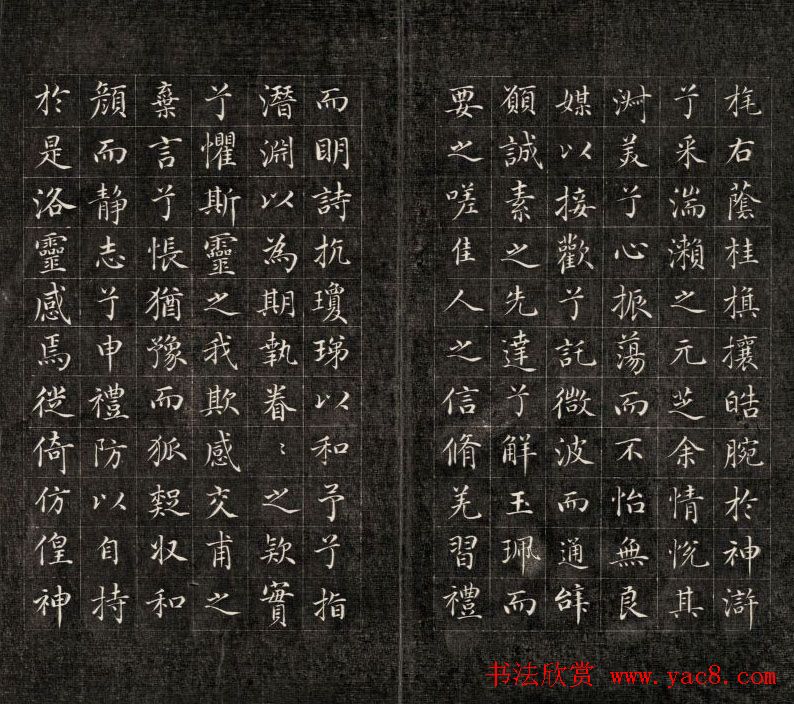 旄右蔭桂旗攘皓腕於神滸
兮采湍瀨之元芝余情悅其
淑美兮心振蕩而不怡無良
媒以接歡兮託微波而通辞
願誠素之先達兮解玉珮而
要之嗟佳人之信脩羌習禮
而明詩抗瓊珶以和予兮指
潛淵以為期執眷〻之款實
兮懼斯靈之我欺感交甫之
棄言兮悵猶豫而狐疑収和
顏而静志兮申禮防以自持
於是洛靈感焉徙倚仿偟神
书法欣赏 www.yac8.com